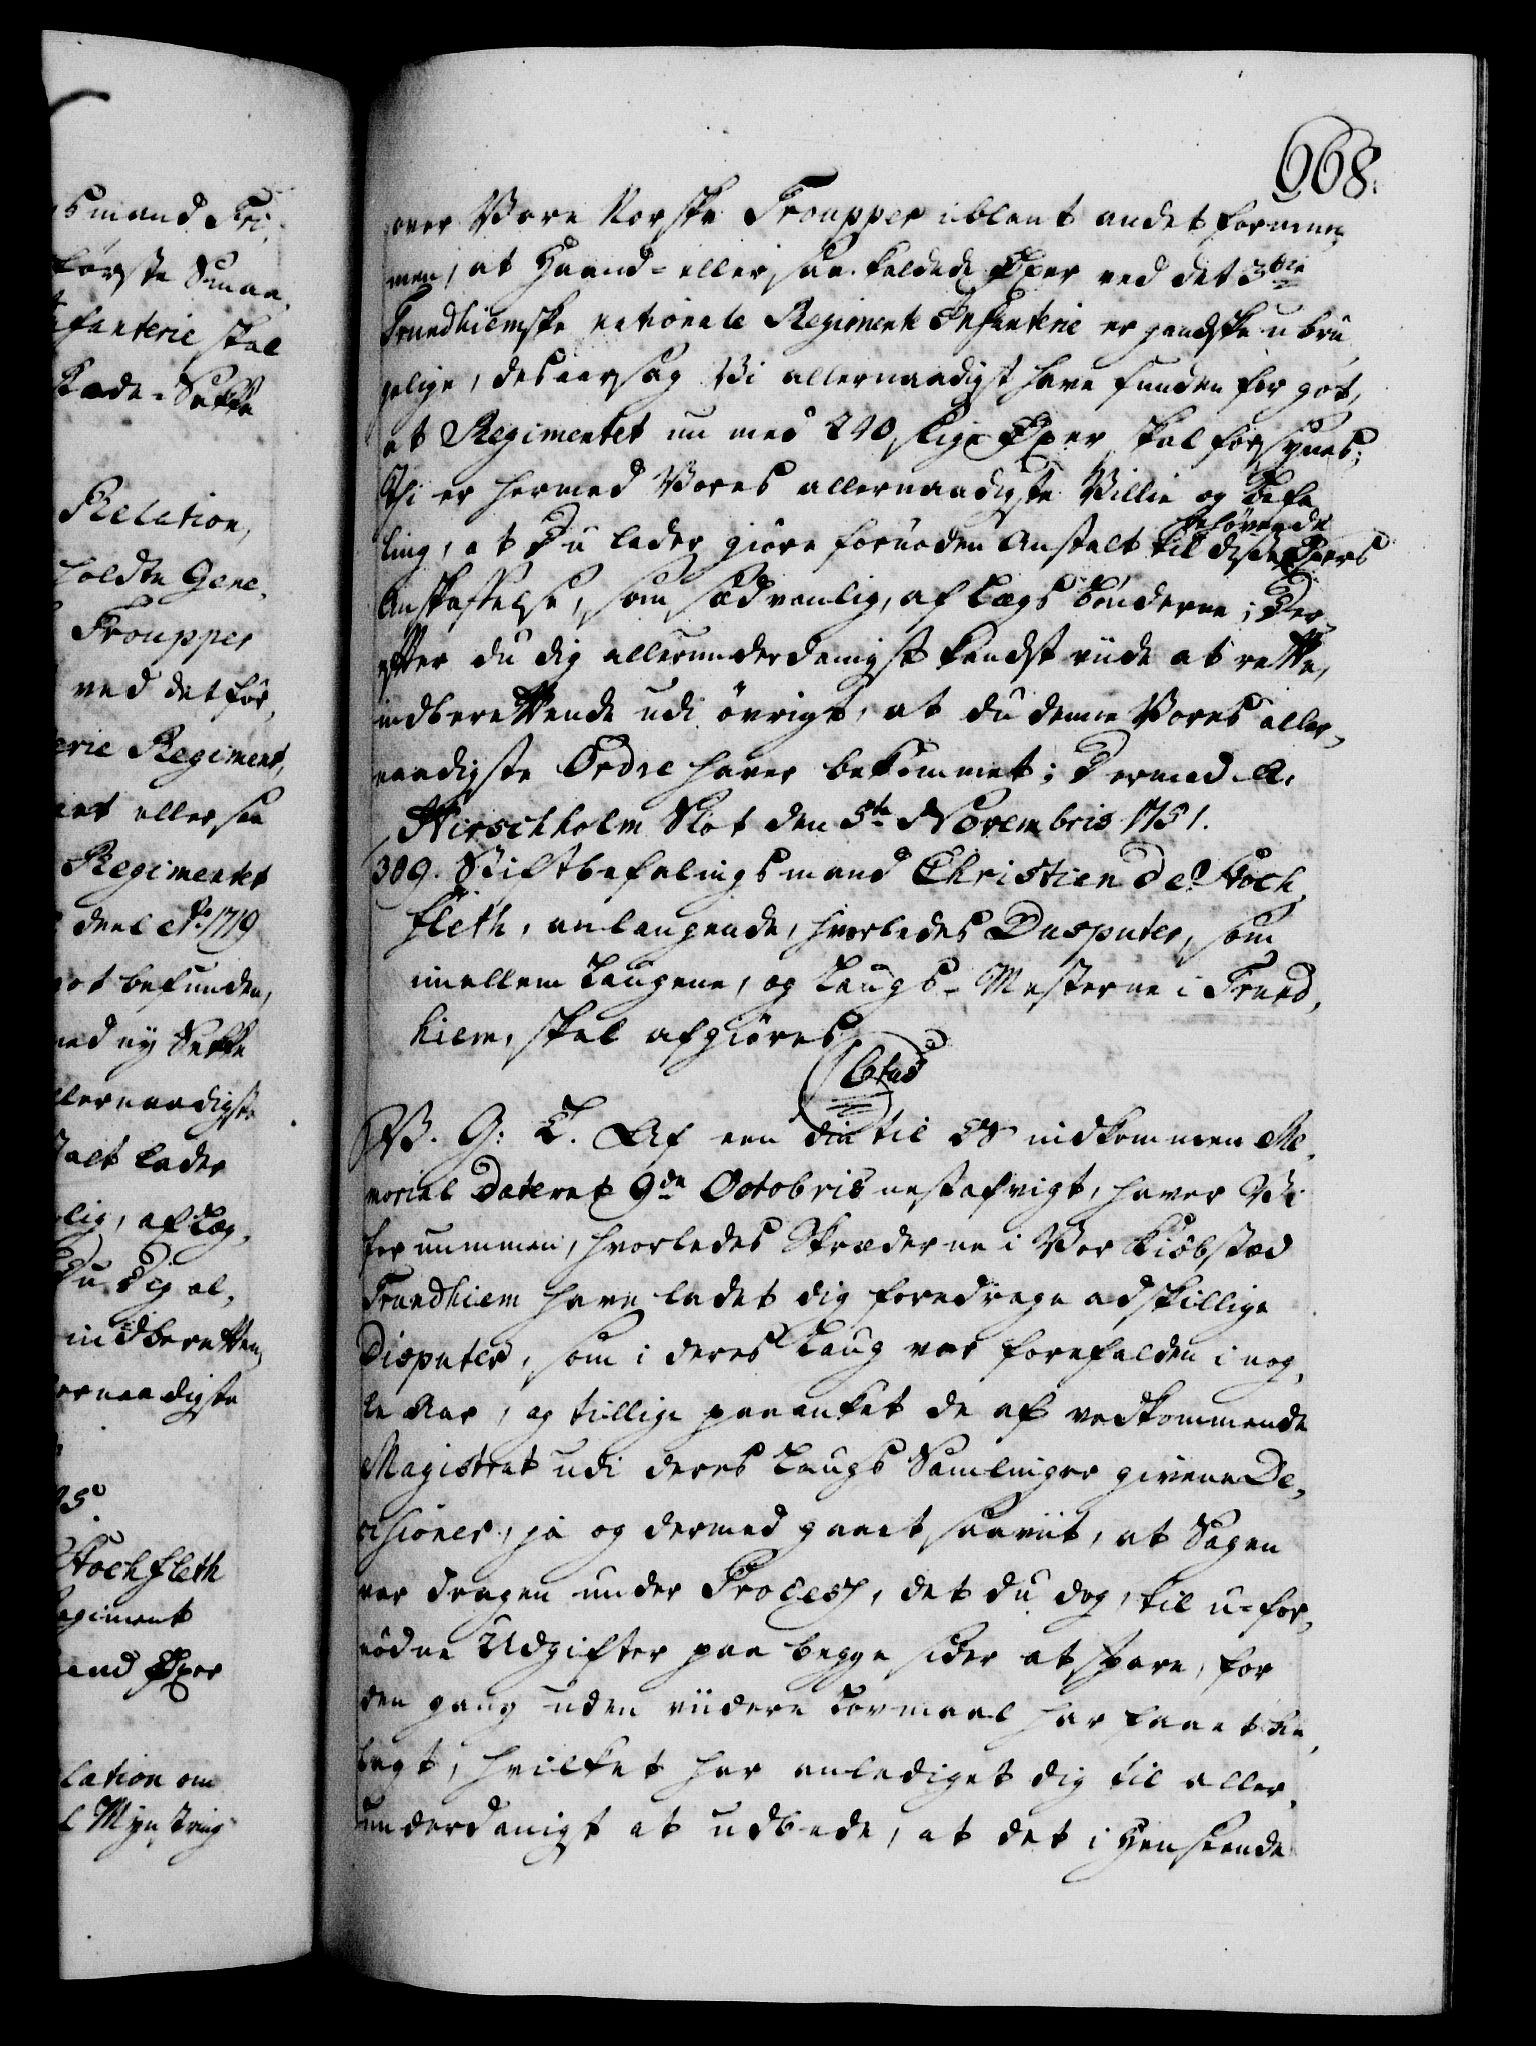 668.
over Vore Norske Troupper iblant andet fornum¬
men, at Haand- eller saa kaldede Øxer ved det 3die
Trundhiemske nationale Regimente Infanterie er gandske u bru¬
gelige, desaarsag Vi allernaadigst have funden for got,
at Regimentet nu med 240 slige Øxer skal forsynes;
Thi er hermed Vores allernaadigste Villie og Befa¬
ling, at Du lader giøre fornøden Anstalt til disse behøvende Øxers
Anskaffelse, som sædvanlig, af Lægs Bønderne; Der¬
efter du dig allerunderdanigst kandst viide at rette,
indberettende udi øvrigt, at du denne Vores aller¬
naadigste Ordre haver bekommet; Dermed A.
Hirschholm Slot den 5te Novembris 1751.
309. Stiftbefalingsmand Christian de Stoch¬
fleth, anlangende, hvorledes Dusputer, som
imellem Laugene, og Laugs-Mesterne i Trund¬
hiem, skal afgiøres
V. G: T. Af een din til Os indkommen Me¬
morial Dateret 9de Octobris nestafvigt, haver Vi
fornummen, hvorledes Skræderne i Vor Kiøbstæd
Trundhiem have ladet dig foredrage adskillige
Disputer, som i deres Laug var forefalden i nog¬
le Aar, og tillige paaanket de af vedkommende
Magistrat udi deres Laugs Samlinger givene De¬
cisioner, ja og dermed gaaet saaviit, at Sagen
var dragen under Process, det du dog, til u-for¬
nødne Udgifter paa begge sider at spare, for
den gang uden viidere Lovmaal har faaet bi¬
lagt, hvilket har anlediget dig til aller¬
underdanigst at udbede, at det i Henseende
asmand Fri¬
første Smaa¬
Infanterie skal
Lade-Stokke
Relation,
holdte Gene¬
Troupper
ved det før¬
erie Regiment,
eller saa
Regimentet
deel Ao. 1719
got befunden,
med ny
llernaadigste
stalt lader
lig, af Læg¬
du dig al¬
indberetten¬
ernaadigste
Stochfleth
Regiment
aand Øxer
lation om
Mynstring